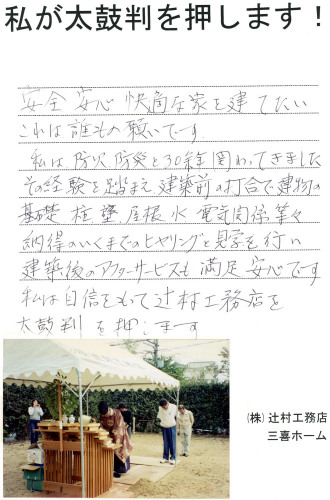 私が太鼓判を押します！
安全 安心 快適な家を建てたい
これは誰もの願いです.
私は防火防発と30余年関わってきました
その経験を踏まえ建築前の打合で建物の
基礎 柱 壁 屋根 水 電気関係等々
納得のいくまでのヒヤリングと見学を行い
建築後のアフターサービスも満足 安心です
私は自信をもって辻村工務店を
太鼓判を押します
(株)辻村工務店
三喜ホーム